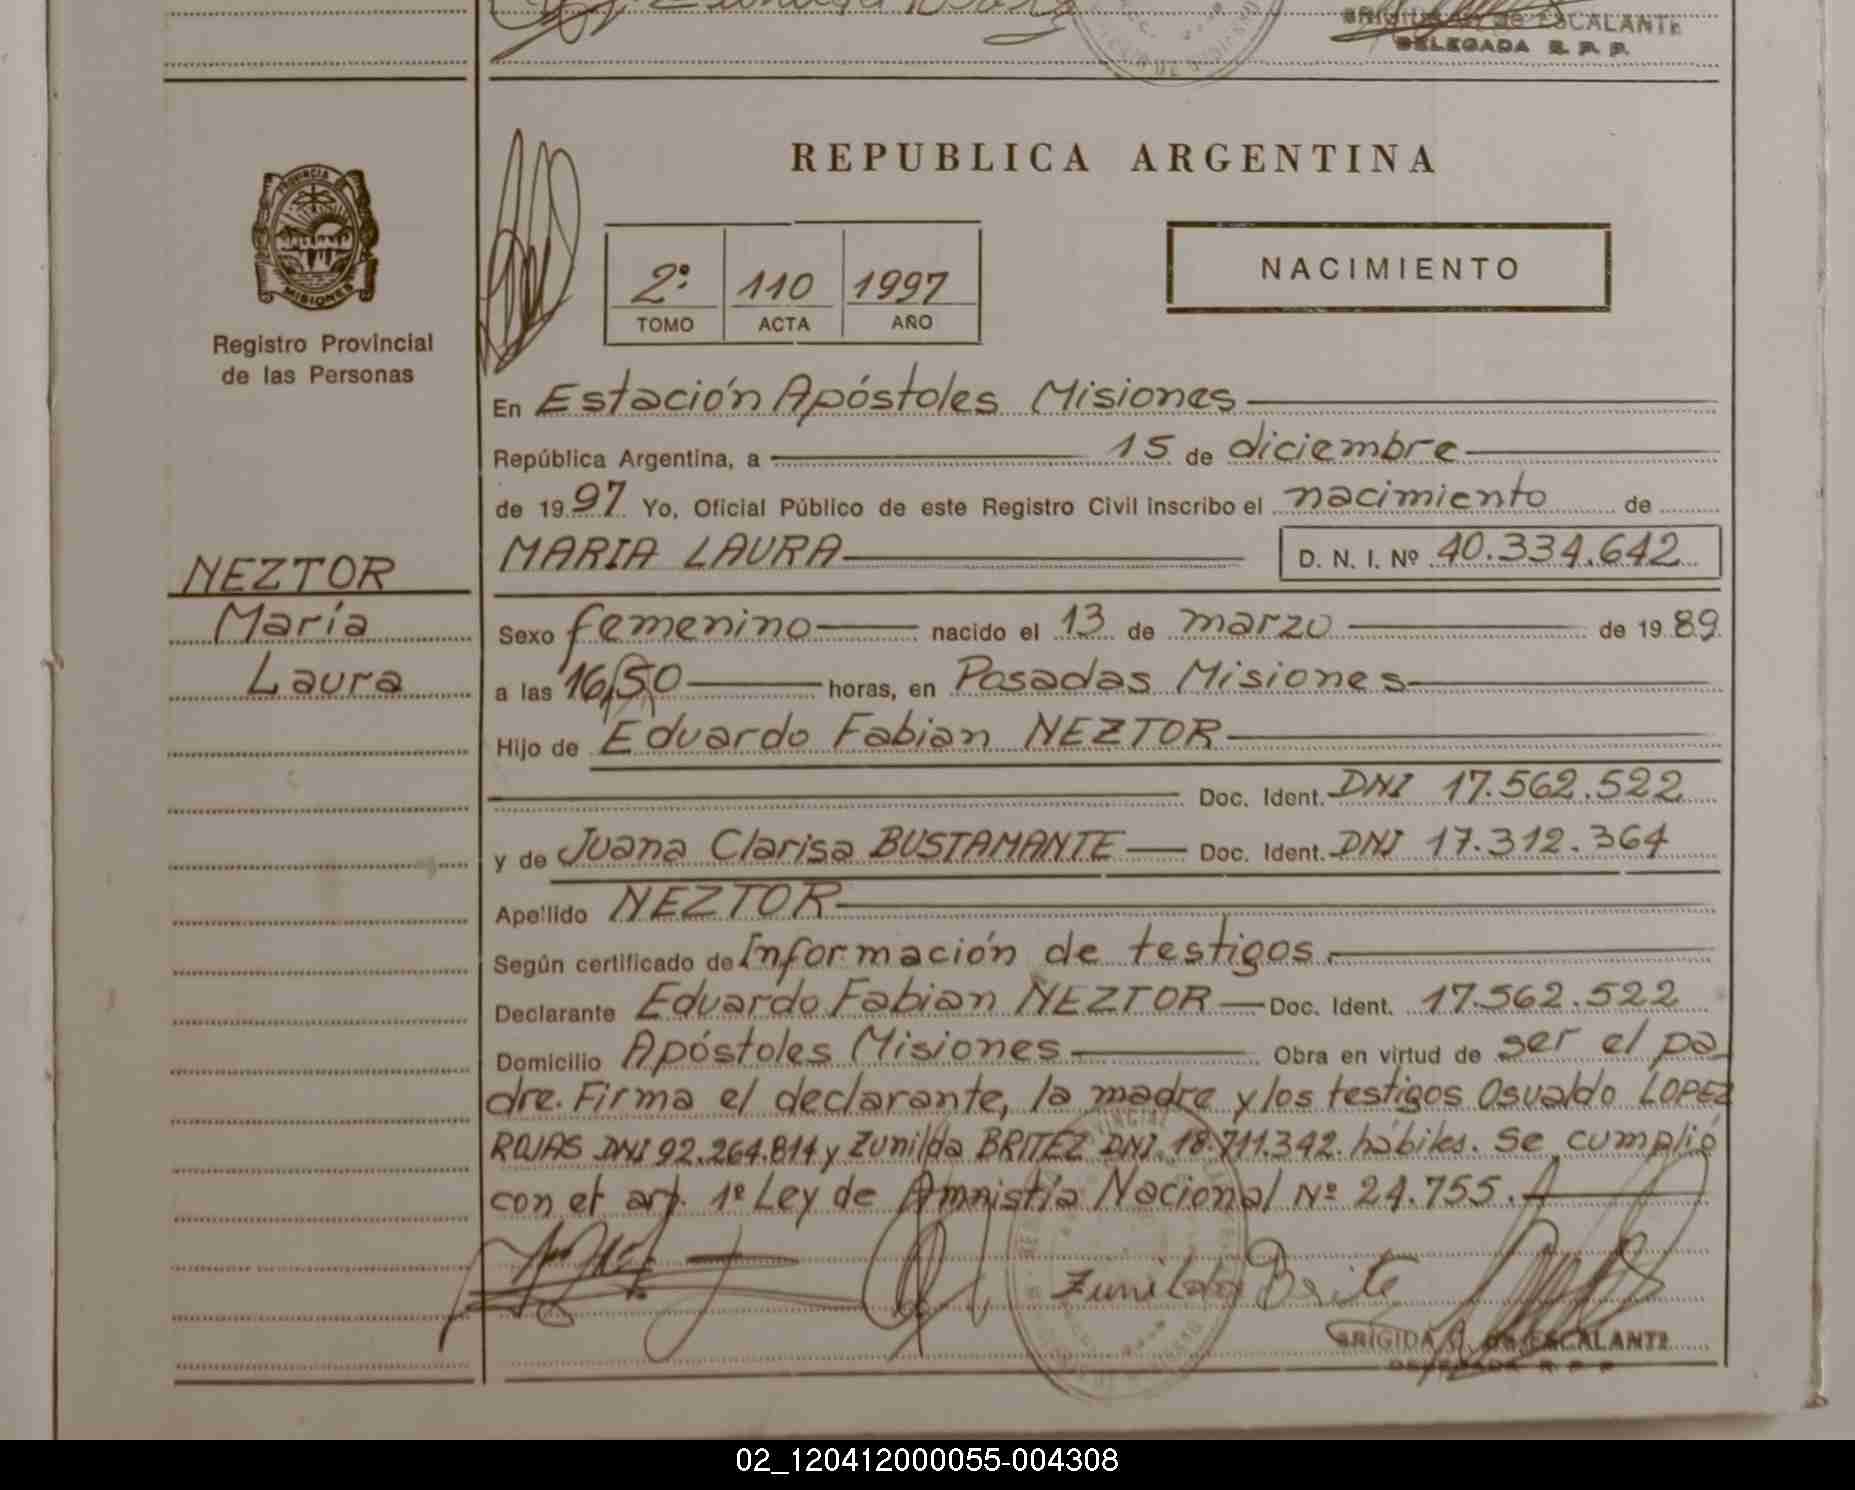 DE ESCALANTE
DELEGADA R. P. P.
PROVINCIA DE
MISIONES
Registro Provincial
de las Personas
REPUBLICA ARGENTINA
2º 110 1997
TOMO ACTA AÑO
NACIMIENTO
En Estación Apóstoles Misiones
República Argentina, a 15 de diciembre
de 1997 Yo, Oficial Público de este Registro Civil inscribo el nacimiento de
NEZTOR
María
Laura
MARIA LAURA D. N. I. Nº 40.334.642
Sexo femenino nacido el 13 de marzo de 1989
a las 16,50 horas, en Posadas Misiones
Hijo de Eduardo Fabian NEZTOR
Doc. Ident. DNI 17.562.522
y de Juana Clarisa BUSTAMANTE Doc. Ident. DNI 17.312.364
Apellido NEZTOR
Según certificado de Información de testigos.
Declarante Eduardo Fabian NEZTOR Doc. Ident. 17.562.522
Domicilio Apóstoles Misiones Obra en virtud de ser el pa
dre. Firma el declarante, la madre y los testigos Osvaldo LOPEZ
ROJAS DNI 92.264.814 y Zunilda BRITEZ DNI. 18.711.342. hábiles. Se cumplió
con el art. 1º Ley de Amnistía Nacional Nº 24.755.
Zunilda Brite
BRIGIDA G. DE ESCALANTE
DELEGADA R. P. P.
02_120412000055-004308